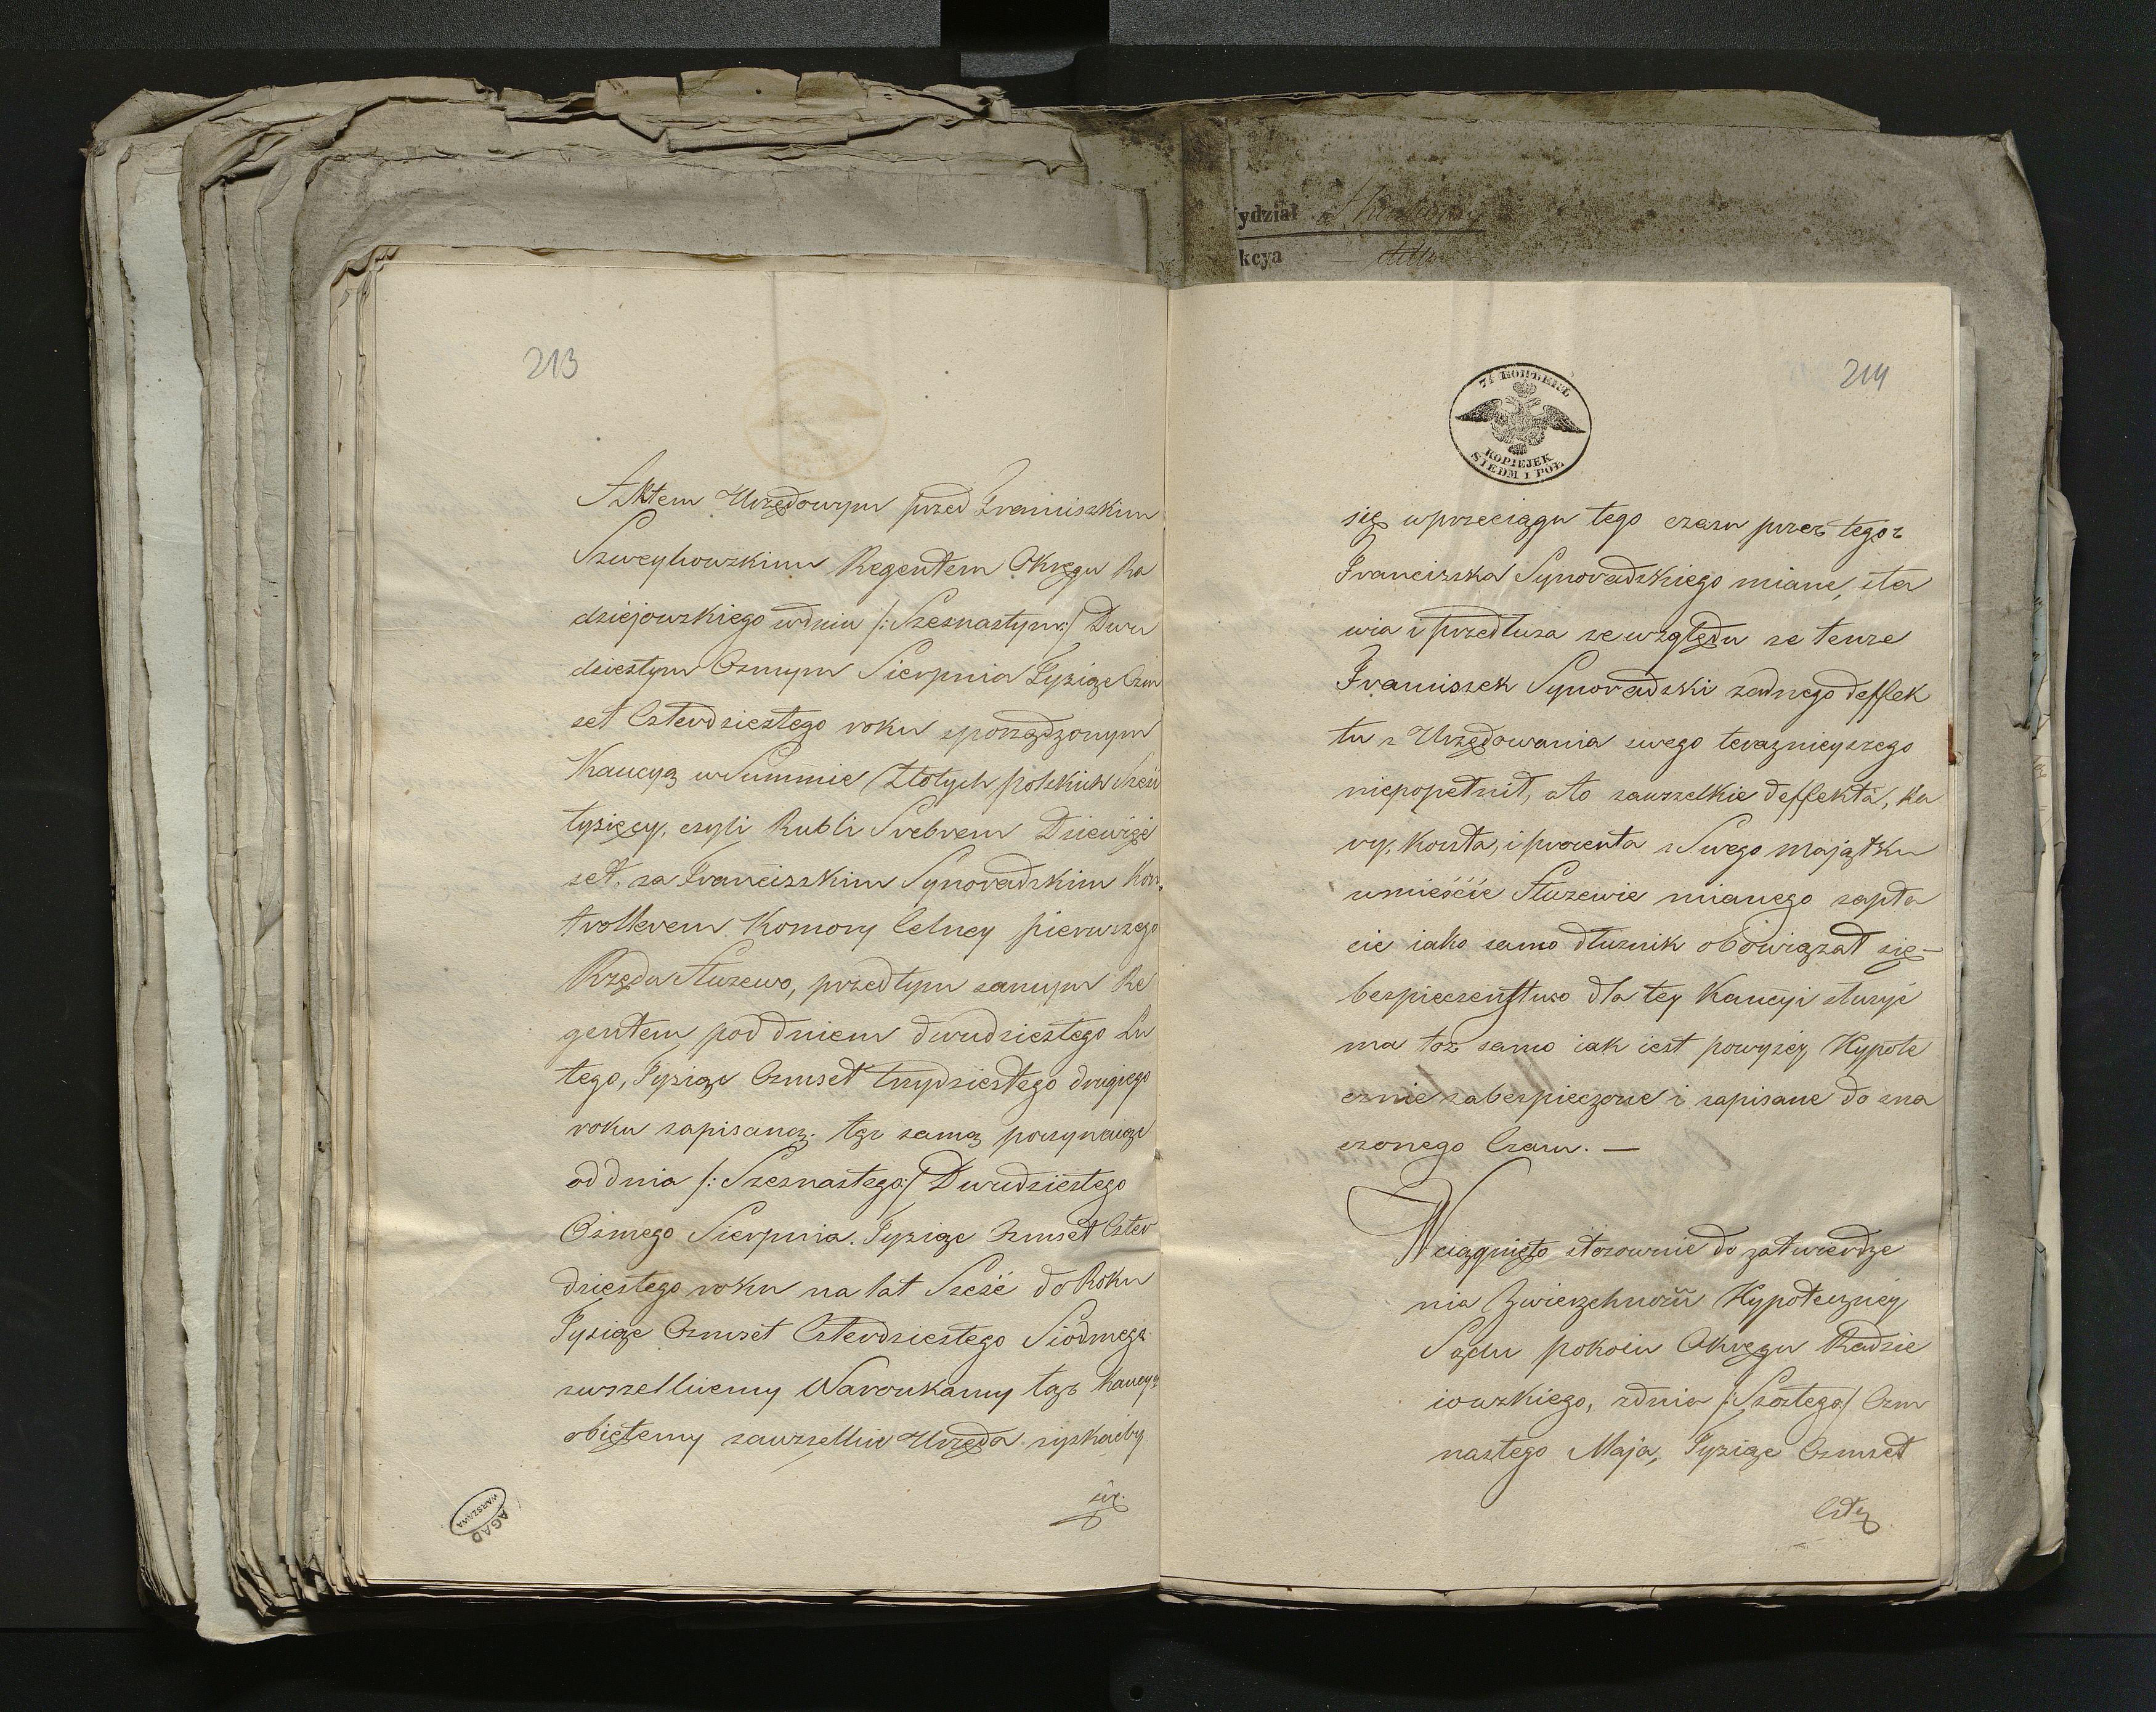 213
Aktem Urzędowym przed Franciszkim
Szweykowskim Regentem Okręgu Ra
dziejowskiego w dniu /: Szesnastym :/ Dwu
dziestym Osmym Sierpnia Tysiąc Osm
set Czterdziestego roku sporządzonym
Kaucyą w Summie Złotych polskich Sześć
tysięcy, czyli Rubli Srebrem Dziewięć
set, za Franciszkim Synoradzkim Kon
trollerem Komory Celney pierwszego
Rzędu Służewo, przed tym samym Re
gentem pod dniem dwudziestego Lu
tego, Tysiąc Osmset trzydziestego drugiego
roku zapisaną, tęż samą poczynaiąc
od dnia /: Szesnastego :/ Dwudziestego
Osmego Sierpnia Tysiąc Osmset Czter
dziestego roku na lat Sześć do Roku
Tysiąc Osmset Czterdziestego Siódmego
zwszelkiemy Warunkamy tąż Kaucyą
obiętemy zawszelkie Urzęda zyskaćby
się
AGAD
WARSZAWA
ydział
kcya
214
7½ КОПѢЕКЪ
KOPIEJEK
SIEDM I PÓŁ
się wprzeciągu tego czasu przez tegoż
Franciszka Synoradzkiego miane, sta
wia i przedłuża ze względu że tenże
Franciszek Synoradzki żadnego deffek
tu z Urzędowania swego terazniejszego
niepopełnił, ato zawszelkie deffekta, ka
ry, koszta, i procenta z Swego majątku
wmieście Służewie mianego zapła
cić iako samo dłużnik obowiązał się –
bespieczeństwo dla tey Kaucyi służyć
ma toż samo iak iest powyżej Hypote
cznie zabespieczone i zapisane do ozna
czonego Czasu. —
Wciągnięto stosownie do zatwierdze
nia Zwierzchności Hypoteczney
Sądu pokoiu Okręgu Radzie
iowskiego, zdnia /: Szóstego :/ Osm
nastego Maja, Tysiąc Osmset
Czte